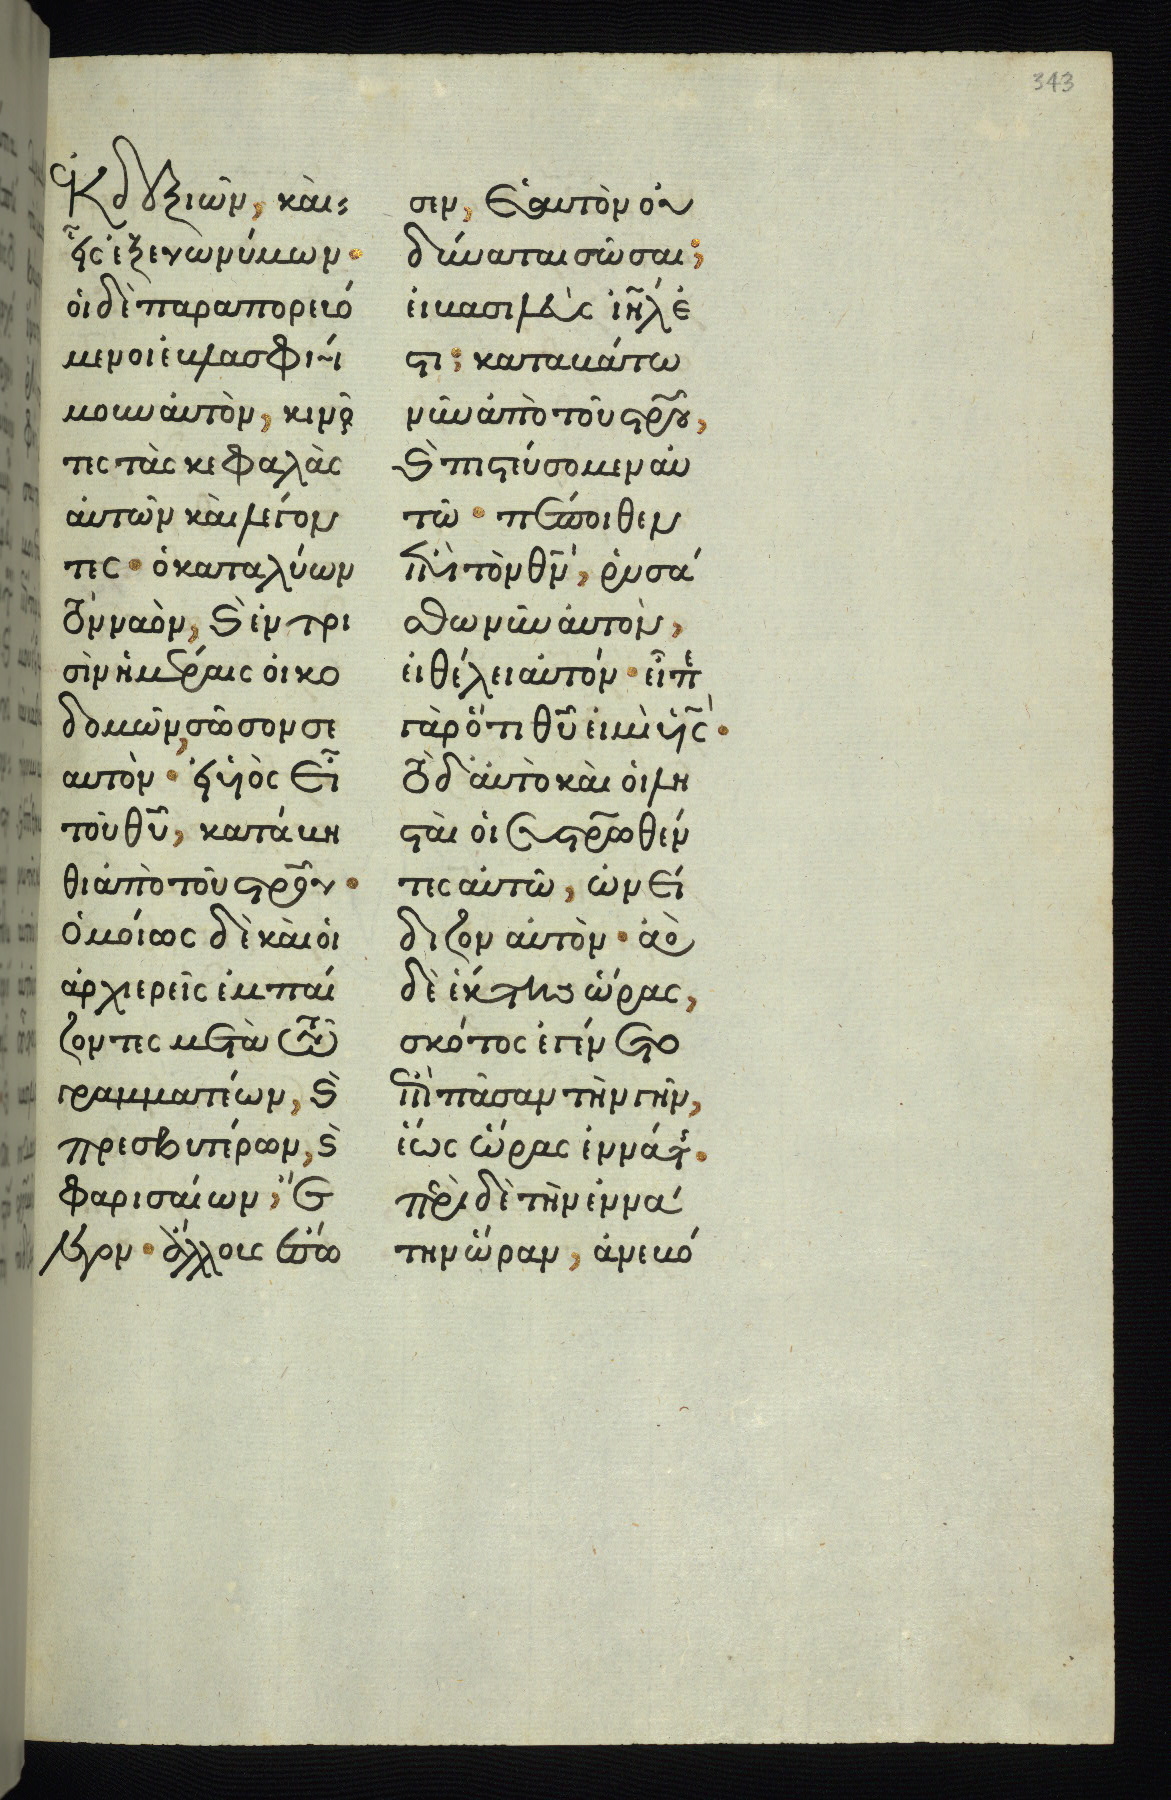 343
ἐκ δεξιῶν, καὶ
εἷς ἐξ εὐωνύμων·
οἱ δὲ παραπορευό
μενοι ἐβλασφή
μουν αὐτὸν, κινοῦν
τες τὰς κεφαλὰς
αὐτῶν καὶ λέγον
τες· ὁ καταλύων
τὸν ναὸν, καὶ ἐν τρι
σὶν ἡμέραις οἰκο
δομῶν, σῶσον σε
αυτὸν· εἰ υἱὸς εἶ
τοῦ θῦ, κατάβη
θι ἀπὸ τοῦ στρου·
ὁμοίως δὲ καὶ οἱ
ἀρχιερεῖς ἐμπαί
ζοντες μετὰ τῶν
γραμματέων, καὶ
πρεσβυτέρων, καὶ
φαρισαίων, ἔ
λεγον· ἄλλους ἔσω
σεν, ἑαυτὸν οὐ
δύναται σῶσαι;
εἰ βασιλεὺς ἰηλ ἐ
στι; καταβάτω
νῦν ἀπὸ τοῦ στρου,
καὶ πιστεύσομεν αὐ
τῶ· πέποιθεν
ἐπὶ τὸν θν, ρυσά
σθω νῦν αὐτὸν,
εἰ θέλει αὐτόν· εἶπε
γὰρ ὅτι θῦ εἰμὶ υἱς·
τὸ δ' αὐτὸ καὶ οἱ λη
σταὶ οἱ συστρωθέν
τες αὐτῶ, ὠνεί
διζον αὐτὸν· ἀπὸ
δὲ ἕκτης ὥρας,
σκότος ἐγένετο
ἐπὶ πᾶσαν τὴν γῆν,
ἕως ὥρας ἐννάτης·
περὶ δὲ τὴν ἐννά
την ὥραν, ἀνεβό